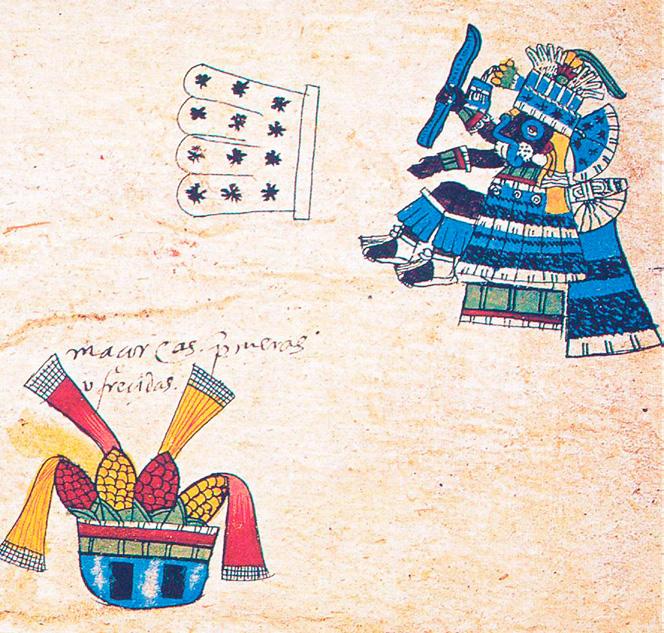 maçorcas primeras
ofreçidas.